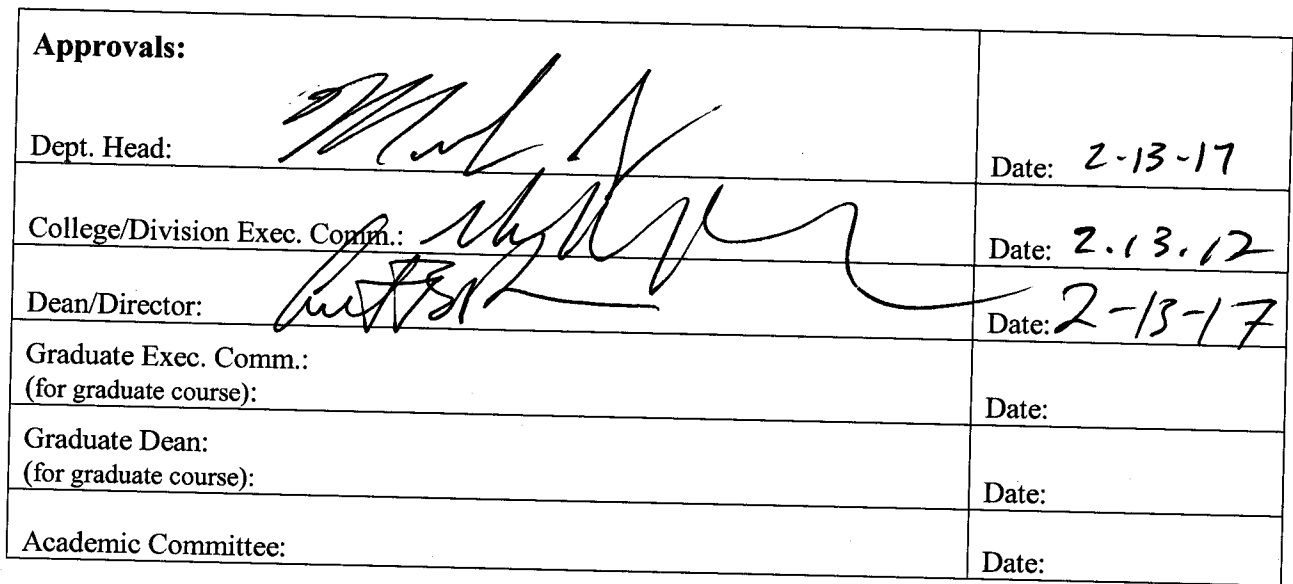 Approvals:
Dept. Head:
Date: 2-13-17
College/Division Exec. Comm.:
Date: 2.13.12
Dean/Director:
Date: 2-13-17
Graduate Exec. Comm.:
(for graduate course):
Date:
Graduate Dean:
(for graduate course):
Date:
Academic Committee:
Date: